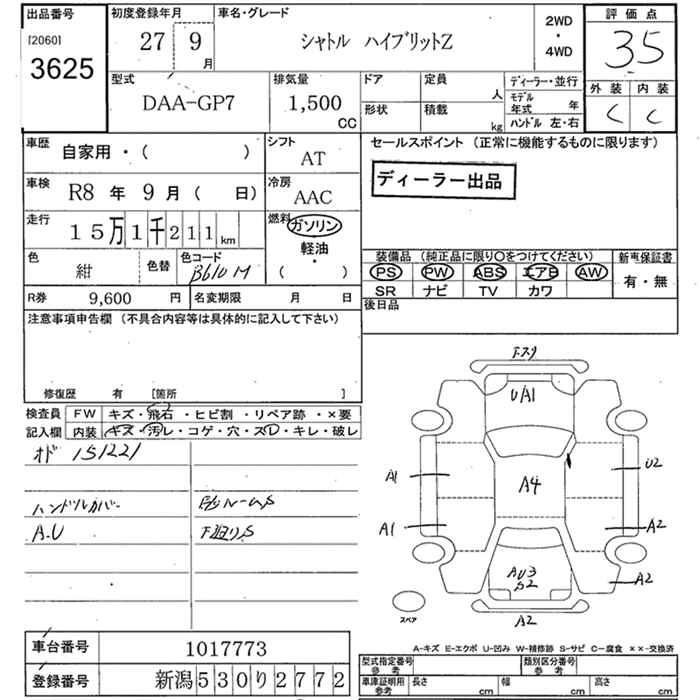 出品番号
[2060]
3625
初度登録年月
27 9
月
車名・グレード
シャトル ハイブリットZ
2WD
・
4WD
評価点
35
外装 内装
C C
型式
DAA-GP7
排気量
1,500
CC
ドア 定員
人
形状 積載
kg
ディーラー・並行
モデル
年式 年
ハンドル 左・右
車歴
自家用・( )
シフト
AT
車検
R8 年 9 月 ( 日)
冷房
AAC
走行
15万1千211km
燃料
ガソリン
軽油
・
( )
色
紺
色替
色コード
B610M
R券 9,600 円
名変期限 月 日
セールスポイント (正常に機能するものに限ります)
ディーラー出品
装備品 (純正品に限り○をつけてください)
PS PW ABS エアB AW
SR ナビ TV カワ
新車保証書
有・無
後日品
注意事項申告欄 (不具合内容等は具体的に記入して下さい)
修復歴 有 [箇所 ]
検査員
記入欄
FW キズ・飛石・ヒビ割・リペア跡・×要
内装 キズ・汚レ・コゲ・穴・スレ・キレ・破レ
オド 151221
ハンドルカバー
A.U
下廻りS
F.スリ
U/A1
A1
U2
A4
A1
A2
AU3
S2
A2
A2
スペア
A-キズ E-エクボ U-凹み W-補修跡 S-サビ C-腐食 ××-交換済
車台番号 1017773
登録番号 新潟530り2772
型式指定番号
参考
類別区分番号
参考
車庫証明用
参考
長さ cm
幅 cm
高さ cm